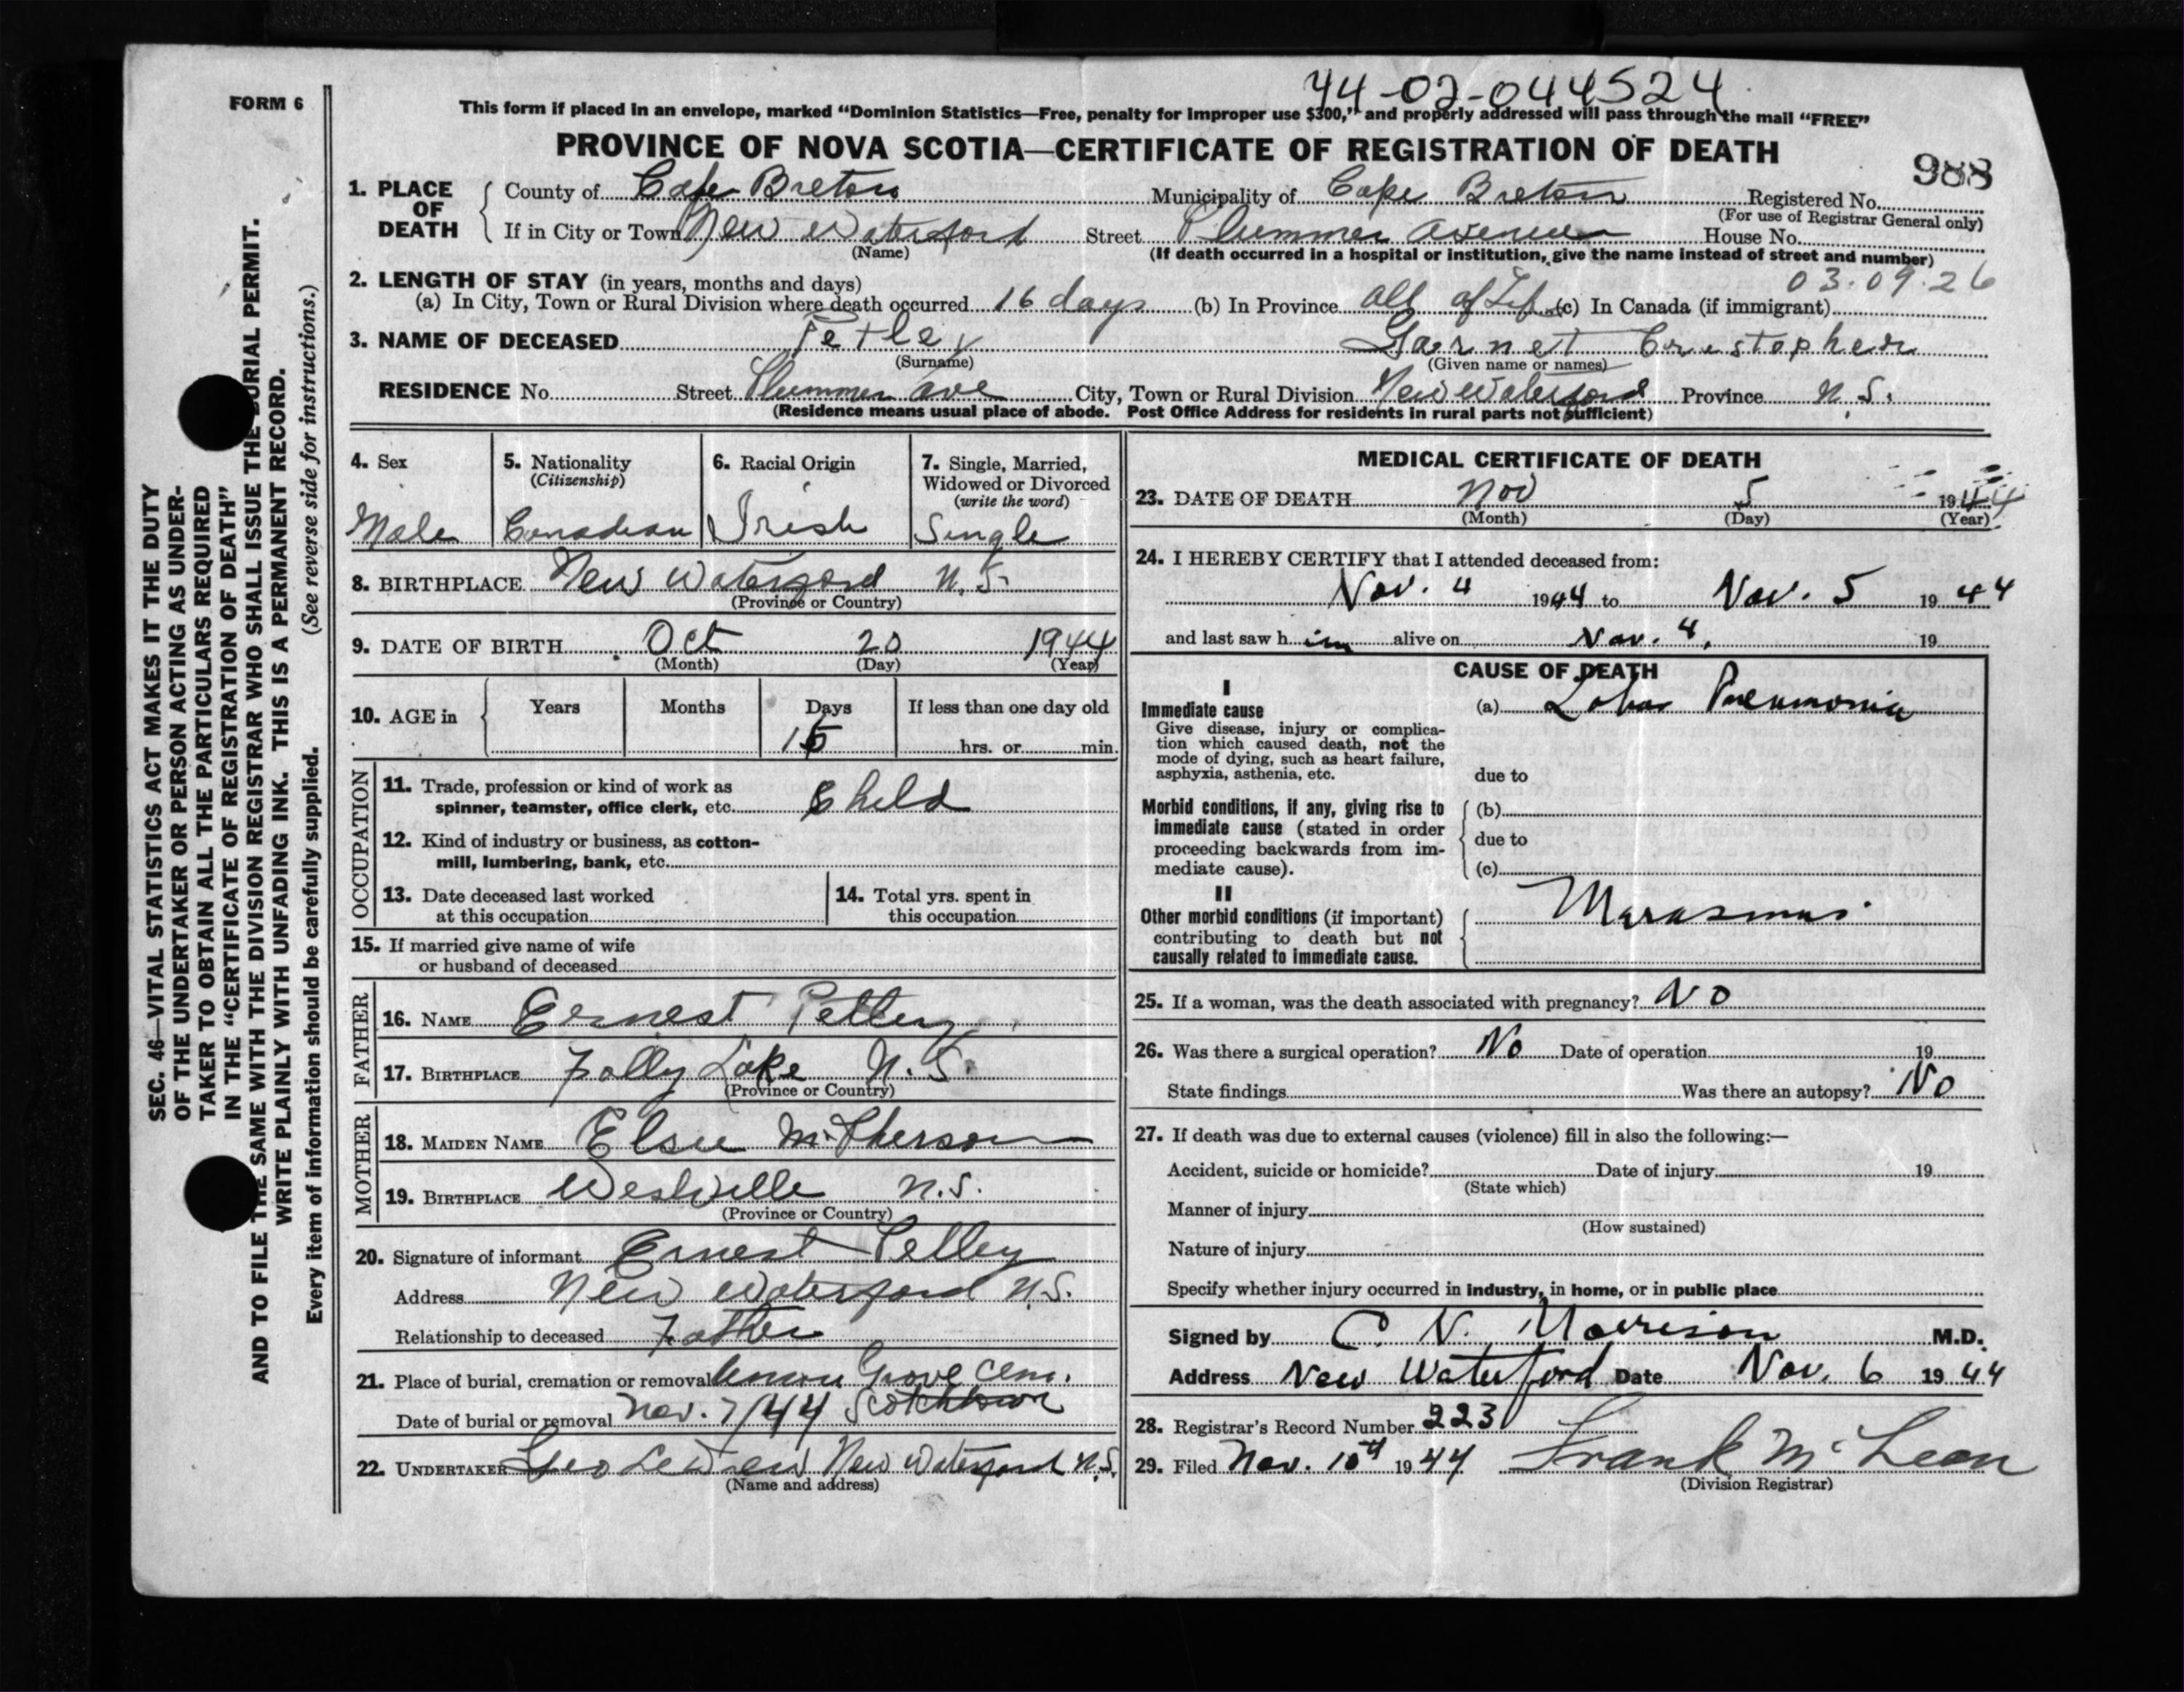 44-02-044524
FORM 6
This form if placed in an envelope, marked “Dominion Statistics—Free, penalty for improper use $300,” and properly addressed will pass through the mail “FREE”
PROVINCE OF NOVA SCOTIA—CERTIFICATE OF REGISTRATION OF DEATH
988
1. PLACE OF DEATH County of Cape Breton Municipality of Cape Breton Registered No.
(For use of Registrar General only)
If in City or Town New Waterford Street Plummer Avenue House No.
(Name) (If death occurred in a hospital or institution, give the name instead of street and number)
2. LENGTH OF STAY (in years, months and days) 03.09.26
(a) In City, Town or Rural Division where death occurred 16 days (b) In Province all of Life (c) In Canada (if immigrant)
3. NAME OF DECEASED Petley Garnet Cristopher
(Surname) (Given name or names)
RESIDENCE No. Street Plummer Ave City, Town or Rural Division New Waterford Province N.S.
(Residence means usual place of abode. Post Office Address for residents in rural parts not sufficient)
4. Sex 5. Nationality (Citizenship) 6. Racial Origin 7. Single, Married, Widowed or Divorced (write the word)
Male Canadian Irish Single
8. BIRTHPLACE New Waterford N.S.
(Province or Country)
9. DATE OF BIRTH Oct 20 1944
(Month) (Day) (Year)
10. AGE in Years Months Days If less than one day old
15 hrs. or min.
OCCUPATION
11. Trade, profession or kind of work as
spinner, teamster, office clerk, etc. Child
12. Kind of industry or business, as cotton-
mill, lumbering, bank, etc.
13. Date deceased last worked
at this occupation
14. Total yrs. spent in
this occupation
15. If married give name of wife
or husband of deceased
FATHER
16. NAME Ernest Petley
17. BIRTHPLACE Folly Lake N.S.
(Province or Country)
MOTHER
18. MAIDEN NAME Elsie McPherson
19. BIRTHPLACE Westville N.S.
(Province or Country)
20. Signature of informant Ernest Petley
Address New Waterford N.S.
Relationship to deceased Father
21. Place of burial, cremation or removal Grove Cem.
Date of burial or removal Nov. 7/44 Scotchtown
22. UNDERTAKER Geo New Waterford N.S.
(Name and address)
MEDICAL CERTIFICATE OF DEATH
23. DATE OF DEATH Nov 5 1944
(Month) (Day) (Year)
24. I HEREBY CERTIFY that I attended deceased from:
Nov. 4 1944 to Nov. 5 1944
and last saw h im alive on Nov. 4, 19
CAUSE OF DEATH
I
Immediate cause
Give disease, injury or complica-
tion which caused death, not the
mode of dying, such as heart failure,
asphyxia, asthenia, etc.
(a) Lobar Pneumonia
due to
Morbid conditions, if any, giving rise to
immediate cause (stated in order
proceeding backwards from im-
mediate cause).
(b)
due to
(c)
II
Other morbid conditions (if important)
contributing to death but not
causally related to immediate cause.
Marasmus
25. If a woman, was the death associated with pregnancy? No
26. Was there a surgical operation? No Date of operation 19
State findings Was there an autopsy? No
27. If death was due to external causes (violence) fill in also the following:—
Accident, suicide or homicide? Date of injury 19
(State which)
Manner of injury
(How sustained)
Nature of injury
Specify whether injury occurred in industry, in home, or in public place
Signed by C. N. Morrison M.D.
Address New Waterford Date Nov. 6 1944
28. Registrar's Record Number 223
29. Filed Nov. 10th 1944 Frank McLean
(Division Registrar)
SEC. 46—VITAL STATISTICS ACT MAKES IT THE DUTY
OF THE UNDERTAKER OR PERSON ACTING AS UNDER-
TAKER TO OBTAIN ALL THE PARTICULARS REQUIRED
IN THE “CERTIFICATE OF REGISTRATION OF DEATH”
AND TO FILE THE SAME WITH THE DIVISION REGISTRAR WHO SHALL ISSUE THE BURIAL PERMIT.
WRITE PLAINLY WITH UNFADING INK. THIS IS A PERMANENT RECORD.
Every item of information should be carefully supplied. (See reverse side for instructions.)